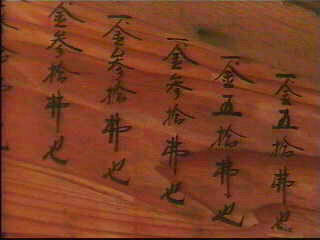 一金五拾弗也
一金五拾弗也
一金参拾弗也
一金参拾弗也
金参拾弗也